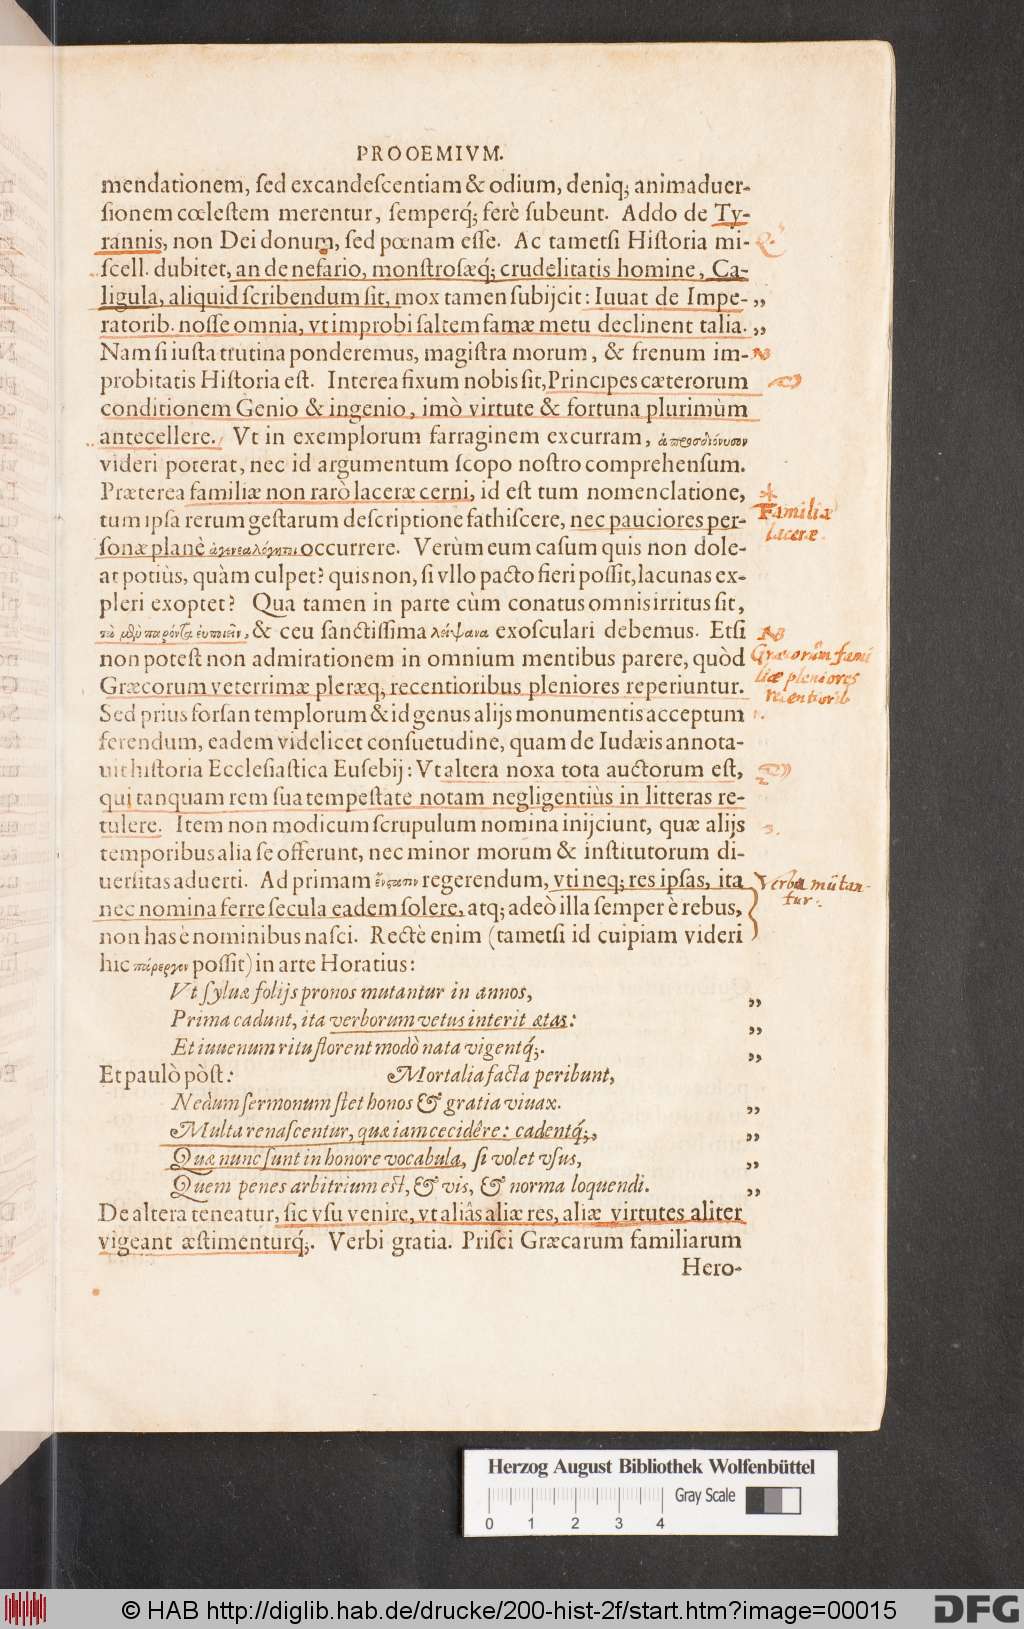 PROOEMIVM.
mendationem, ſed excandeſcentiam & odium, deniq; animaduer-
ſionem cœleſtem merentur, ſemperq́; ferè ſubeunt. Addo de Ty-
rannis, non Dei donum, ſed pœnam eſſe. Ac tametſi Hiſtoria mi-
ſcell. dubitet, an de nefario, monſtroſæq́; crudelitatis homine, Ca-
ligula, aliquid ſcribendum ſit, mox tamen ſubijcit: Iuuat de Impe- „
ratorib. noſſe omnia, vt improbi ſaltem famæ metu declinent talia. „
Nam ſi iuſta trutina ponderemus, magiſtra morum, & frenum im- NB
probitatis Hiſtoria eſt. Interea fixum nobis ſit, Principes cæterorum
conditionem Genio & ingenio, imò virtute & fortuna plurimùm
antecellere. Vt in exemplorum farraginem excurram, ἀπροσδιόνυσον
videri poterat, nec id argumentum ſcopo noſtro comprehenſum.
Præterea familiæ non rarò laceræ cerni, id eſt tum nomenclatione,
tum ipſa rerum geſtarum deſcriptione fathiſcere, nec pauciores per-
Familiæ
laceræ.
ſonæ planè ἀγενεαλόγητοι occurrere. Verùm eum caſum quis non dole-
at potiùs, quàm culpet? quis non, ſi vllo pacto fieri poſſit, lacunas ex-
pleri exoptet? Qua tamen in parte cùm conatus omnis irritus ſit,
τὰ μὲν παρόντα εὐποιεῖν, & ceu ſanctiſſima λείψανα exoſculari debemus. Etſi
NB
non poteſt non admirationem in omnium mentibus parere, quòd
Græcorum veterrimæ pleræq; recentioribus pleniores reperiuntur.
Græcorum fami
liæ pleniores
recentiorib
Sed prius forſan templorum & id genus alijs monumentis acceptum
ferendum, eadem videlicet conſuetudine, quam de Iudæis annota-
uit hiſtoria Eccleſiaſtica Euſebij: Vt altera noxa tota auctorum eſt,
qui tanquam rem ſua tempeſtate notam negligentiùs in litteras re-
tulere. Item non modicum ſcrupulum nomina inijciunt, quæ alijs
temporibus alia ſe offerunt, nec minor morum & inſtitutorum di-
uerſitas aduerti. Ad primam ἔνστασιν regerendum, vti neq; res ipſas, ita
Verba mūtan-
tur.
nec nomina ferre ſecula eadem ſolere, atq; adeò illa ſemper è rebus,
non has è nominibus naſci. Rectè enim (tametſi id cuipiam videri
hic πάρεργον poſſit) in arte Horatius:
Vt ſyluæ folijs pronos mutantur in annos, „
Prima cadunt, ita verborum vetus interit ætas: „
Et iuuenum ritu florent modò nata vigentq́;. „
Et paulò pòſt: Mortalia facta peribunt,
Nedum ſermonum ſtet honos & gratia viuax. „
Multa renaſcentur, quæ iam cecidêre: cadentq́;, „
Quæ nunc ſunt in honore vocabula, ſi volet vſus, „
Quem penes arbitrium eſt, & vis, & norma loquendi. „
De altera teneatur, ſic vſu venire, vt aliâs aliæ res, aliæ virtutes aliter
vigeant æſtimenturq́;. Verbi gratia. Priſci Græcarum familiarum
Hero-
Herzog August Bibliothek Wolfenbüttel
Gray Scale
0 1 2 3 4
© HAB http://diglib.hab.de/drucke/200-hist-2f/start.htm?image=00015
DFG